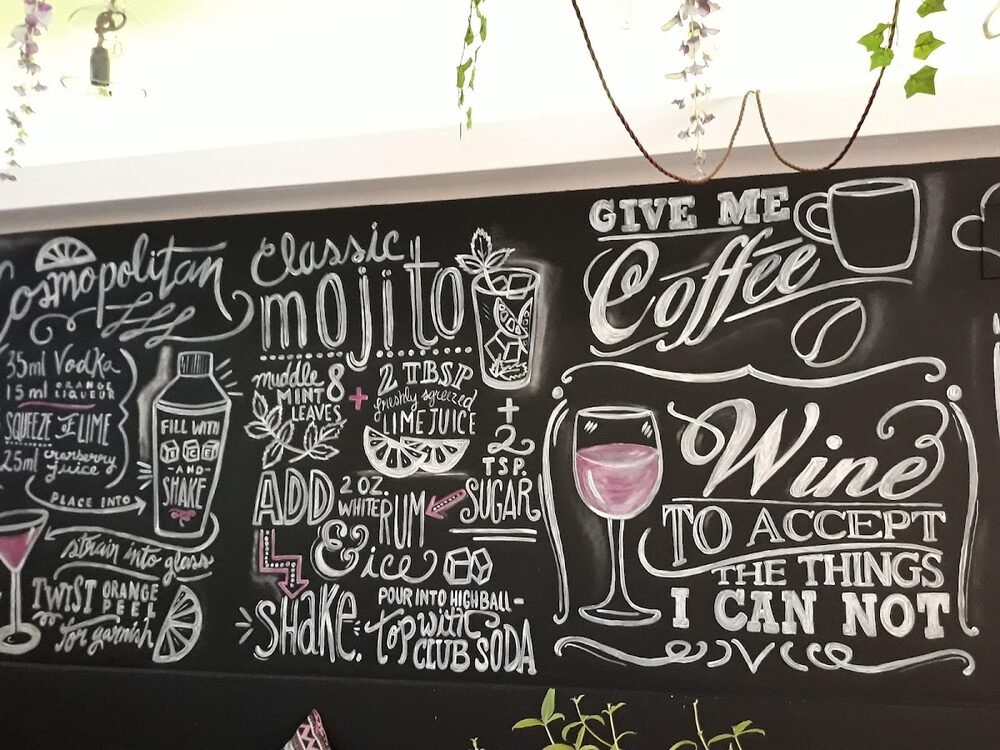 Cosmopolitan
35ml Vodka
15 ml ORANGE LIQUEUR
SQUEEZE OF LIME
25ml cranberry juice
PLACE INTO
FILL WITH
ICE
-AND-
SHAKE
strain into glass
TWIST ORANGE PEEL
for garnish
classic
mojito
muddle 8
MINT
LEAVES
+
2 TBSP
freshly squeezed
LIME JUICE
+
2
TSP.
SUGAR
ADD 2 OZ. WHITE RUM
& ice
SHAKE.
POUR INTO HIGHBALL-
top with
CLUB SODA
GIVE ME
Coffee
Wine
TO ACCEPT
THE THINGS
I CAN NOT